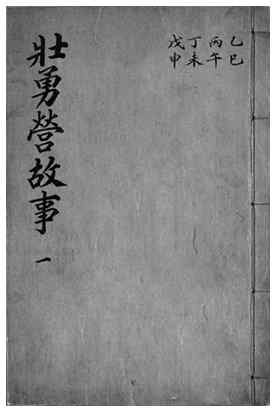 乙巳
丙午
丁未
戊申
壯勇營故事 一